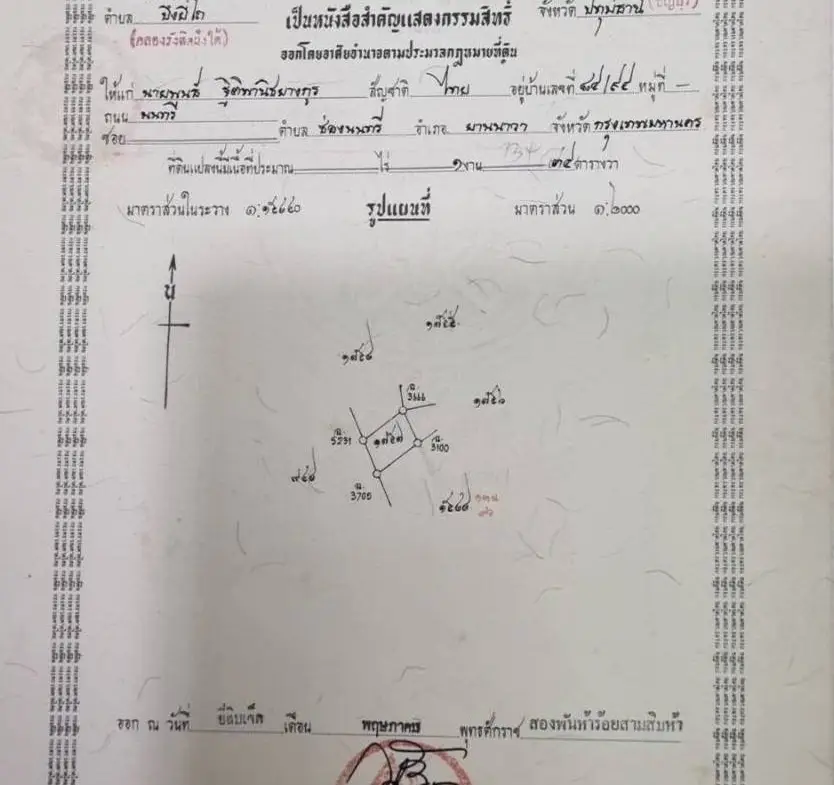 ตำบล บึงยี่โถ เป็นหนังสือสำคัญแสดงกรรมสิทธิ์ จังหวัด ปทุมธานี (ธัญบุรี)
(คลองรังสิตฝั่งใต้)
ออกโดยอาศัยอำนาจตามประมวลกฎหมายที่ดิน
ให้แก่ นายพนส์ สัญชาติ ไทย อยู่บ้านเลขที่ ๘๔/๙๔ หมู่ที่ –
ถนน นนทรี
ซอย ตำบล ช่องนนทรี อำเภอ ยานนาวา จังหวัด กรุงเทพมหานคร
ที่ดินแปลงนี้มีเนื้อที่ประมาณ ไร่ ๑ งาน ๓๔ ตารางวา
134
มาตราส่วนในระวาง รูปแผนที่ มาตราส่วน ๑:๒๐๐๐
น
ฉ. 3666
ฉ. 5231
ฉ. 3100
ฉ. 3705
ออก ณ วันที่ ยี่สิบเจ็ด เดือน พฤษภาคม พุทธศักราช สองพันห้าร้อยสามสิบห้า